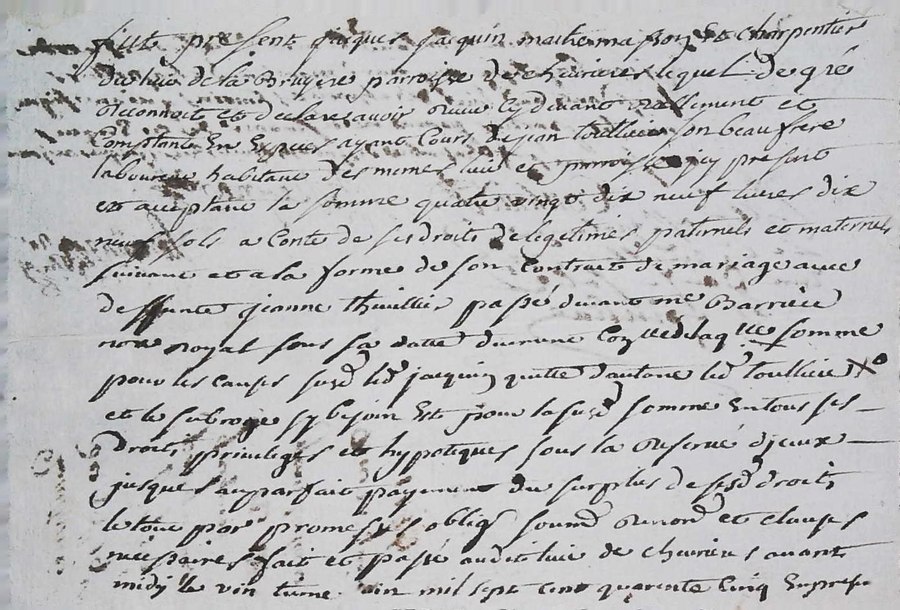 fut present jacques jacquin mathe masson et charpentier
du lieu de la Bruyere parroisse de chevrieres lequel de gré
reconnoit et declare avoir receu cy devant reellement et
Comptant En Especes ayant Cours de jean toullier son beau frere
laboureur habitant des memes lieu et parroisse icy present
et acceptant la somme quatre vingt dix neuf livres dix
neuf sols a Conte de ses droits de legitimes paternels et maternels
suivant et a la forme de son Contrat de mariage avec
deffunte jeanne thuillier passé devant me Barriere
nore Royal sous sa datte de laqlle somme
pour les causes susd led jacquin quitte d'autant led toullier
et le subroge sy besoin Est pour la susd somme En tous ses
Droits privileges et hypoteques sous la Reserve d'jceux
jusques au parfait payement du surplus de sesd droits
le tout par promesses obligs soumd Renond et clauses
necessaires fait et passé audit lieu de chevrieres avant
midy le vin mil sept Cent quarente Cinq En prese